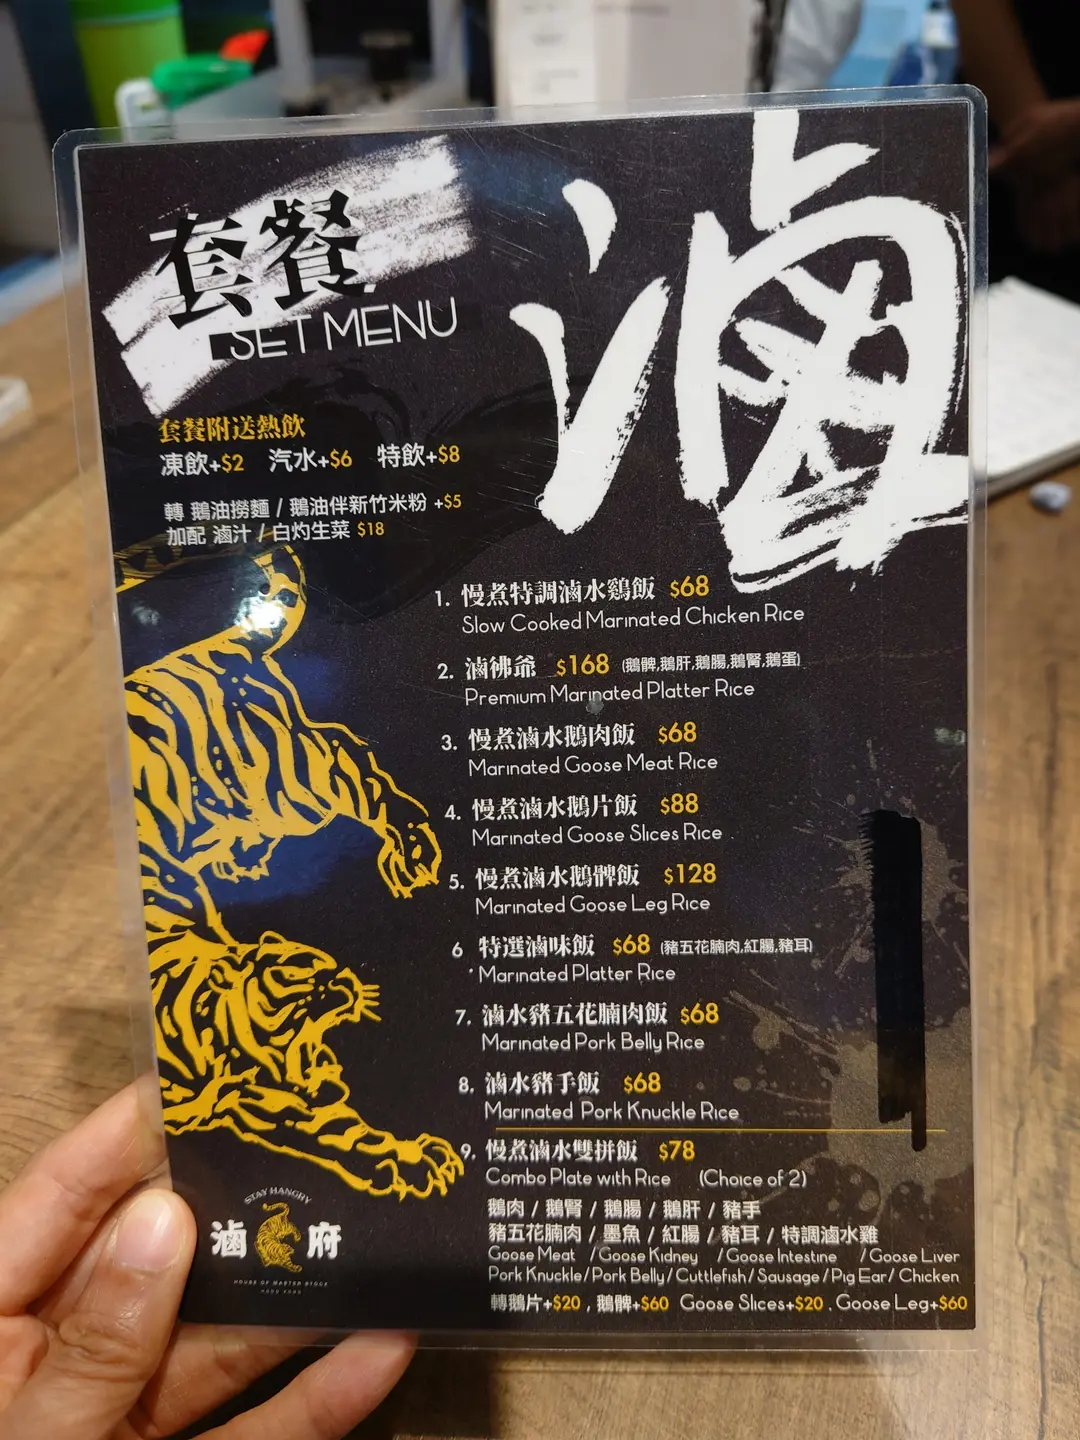 滷
套餐
SET MENU
套餐附送熱飲
凍飲+$2 汽水+$6 特飲+$8
轉 鵝油撈麵 / 鵝油伴新竹米粉 +$5
加配 滷汁 / 白灼生菜 $18
1. 慢煮特調滷水鷄飯 $68
Slow Cooked Marinated Chicken Rice
2. 滷彿爺 $168 (鵝髀,鵝肝,鵝腸,鵝腎,鵝蛋)
Premium Marinated Platter Rice
3. 慢煮滷水鵝肉飯 $68
Marinated Goose Meat Rice
4. 慢煮滷水鵝片飯 $88
Marinated Goose Slices Rice
5. 慢煮滷水鵝髀飯 $128
Marinated Goose Leg Rice
6 特選滷味飯 $68 (豬五花腩肉,紅腸,豬耳)
Marinated Platter Rice
7. 滷水豬五花腩肉飯 $68
Marinated Pork Belly Rice
8. 滷水豬手飯 $68
Marinated Pork Knuckle Rice
9. 慢煮滷水雙拼飯 $78
Combo Plate with Rice (Choice of 2)
鵝肉 / 鵝腎 / 鵝腸 / 鵝肝 / 豬手
豬五花腩肉 / 墨魚 / 紅腸 / 豬耳 / 特調滷水雞
Goose Meat / Goose Kidney / Goose Intestine / Goose Liver
Pork Knuckle / Pork Belly / Cuttlefish / Sausage / Pig Ear / Chicken
轉鵝片+$20 , 鵝髀+$60 Goose Slices+$20 . Goose Leg+$60
STAY HANGRY
滷府
HOUSE OF MASTER STOCK
HONG KONG